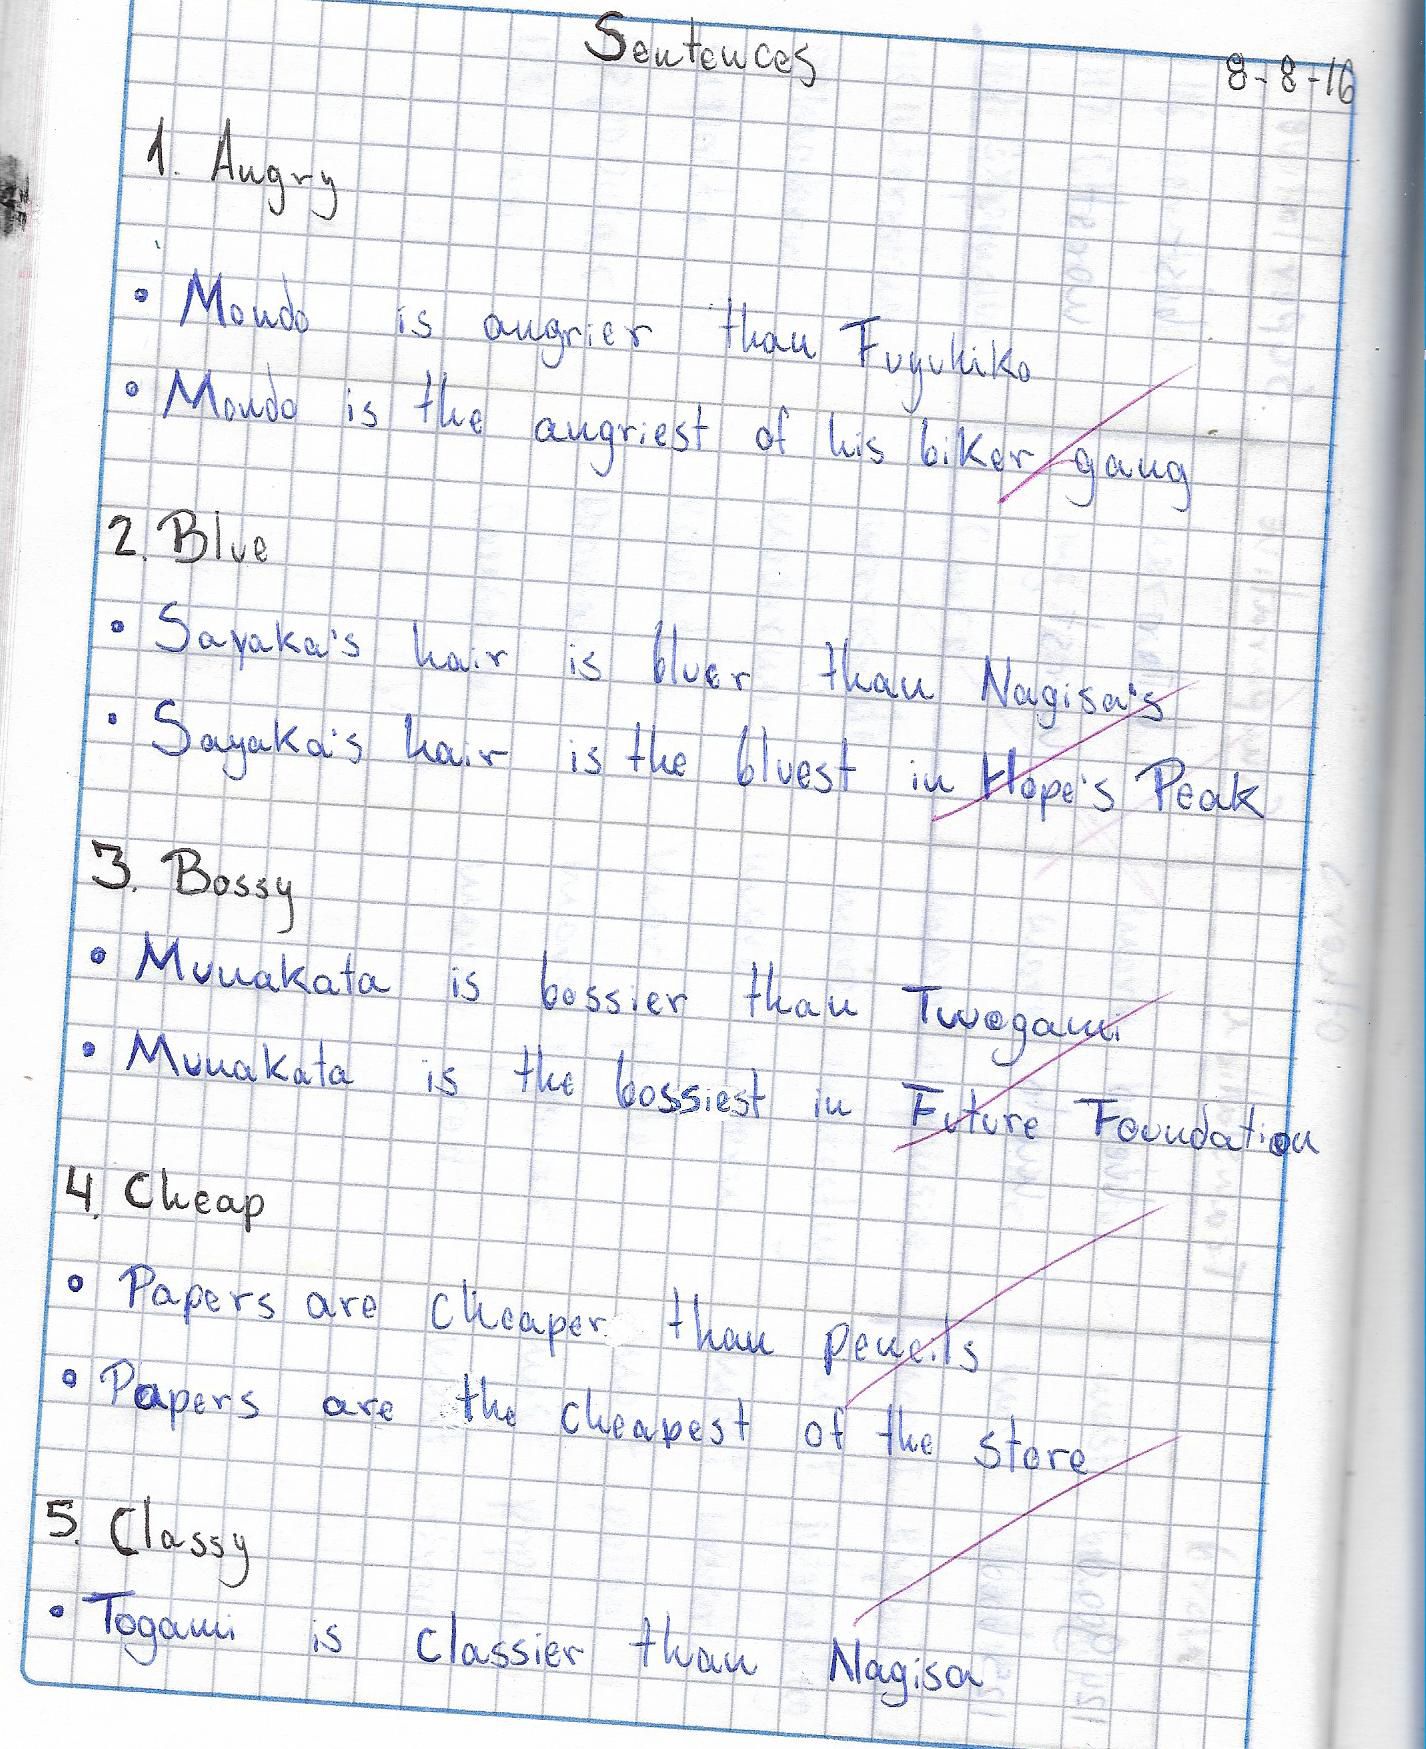 Sentences
8-8-16
1. Angry
• Mondo is angrier than Fuyuhiko
• Mondo is the angriest of his biker gang
2. Blue
• Sayaka's hair is bluer than Nagisa's
• Sayaka's hair is the bluest in Hope's Peak
3. Bossy
• Munakata is bossier than Twogami
• Munakata is the bossiest in Future Foundation
4. Cheap
• Papers are cheaper than pencils
• Papers are the cheapest of the store
5. Classy
• Togami is classier than Nagisa